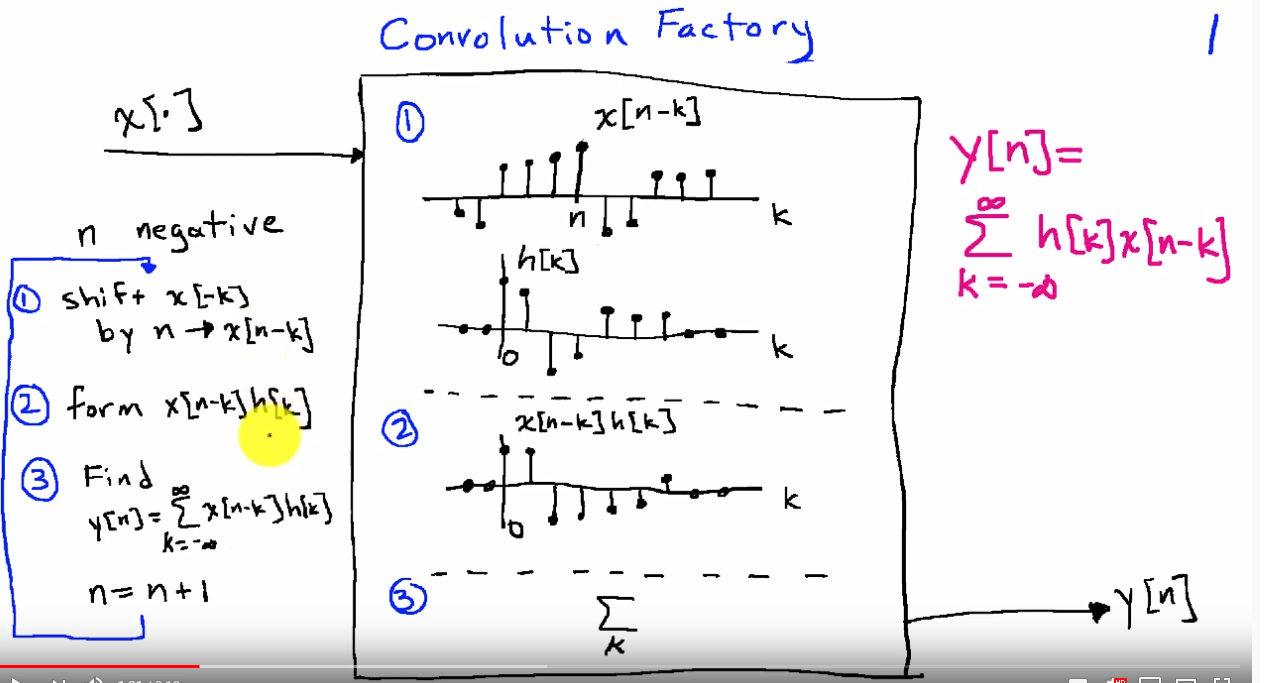 Convolution Factory
1
x[·]
n negative
① shift x[-k]
by n → x[n-k]
② form x[n-k]h[k]
③ Find
y[n] = ∞ Σ k=-∞ x[n-k]h[k]
n = n+1
①
x[n-k]
n
k
h[k]
0
k
②
x[n-k]h[k]
0
k
③
Σ
k
y[n] =
∞
Σ h[k]x[n-k]
k = -∞
y[n]